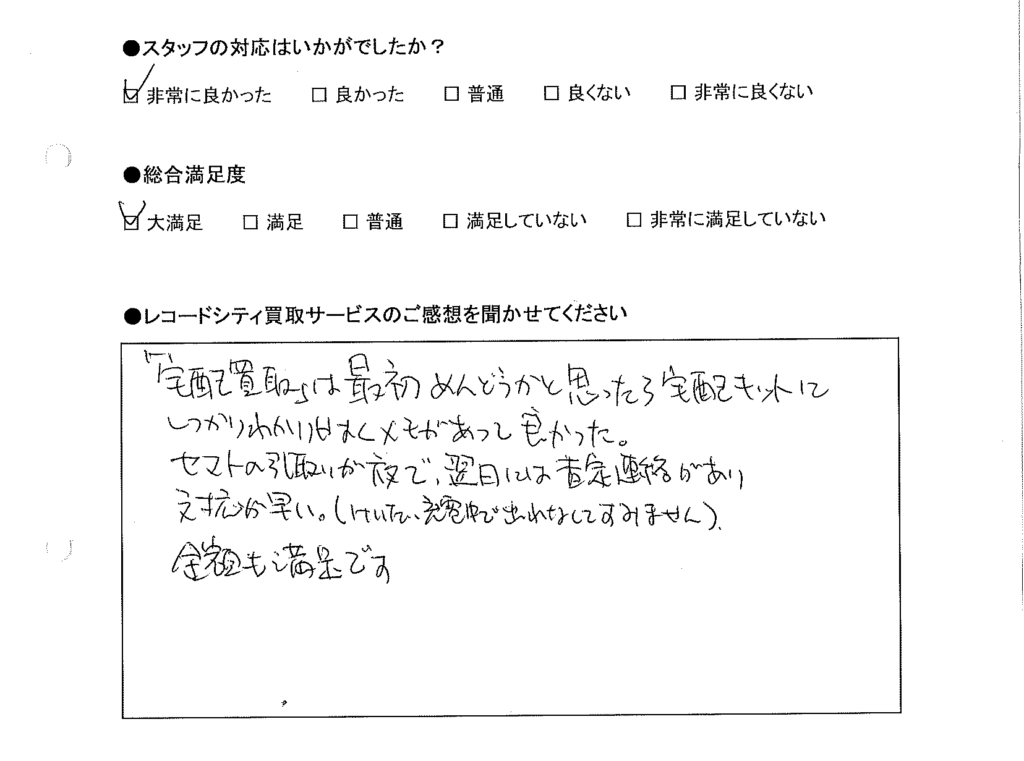 ●スタッフの対応はいかがでしたか？
☑ 非常に良かった □ 良かった □ 普通 □ 良くない □ 非常に良くない
●総合満足度
☑ 大満足 □ 満足 □ 普通 □ 満足していない □ 非常に満足していない
●レコードシティ買取サービスのご感想を聞かせてください
「宅配買取」は最初めんどうかと思ったら宅配キットに
しっかりわかりやすくメモがあって良かった。
ヤマトの引取りが夜で、翌日には査定連絡があり
対応が早い。(けいたい、充電中で出れなくてすみません)。
金額も満足です